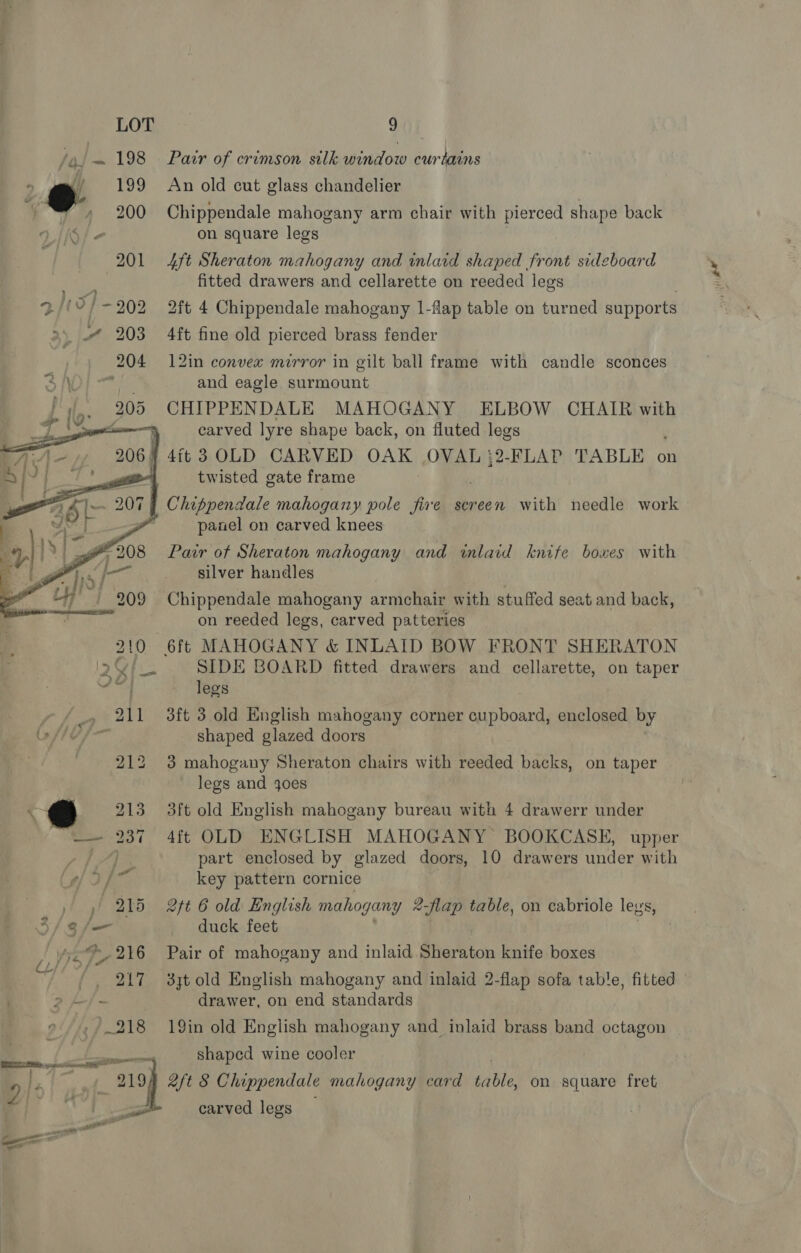 LOT 9
198 Pair of crimson silk window curtains
199 An old cut glass chandelier
200 Chippendale mahogany arm chair with pierced shape back
on square legs
201 4ft Sheraton mahogany and inlaid shaped front sideboard
fitted drawers and cellarette on reeded legs
202 2ft 4 Chippendale mahogany 1-flap table on turned supports
203 4ft fine old pierced brass fender
204 12in convex mirror in gilt ball frame with candle sconces
and eagle surmount
205 CHIPPENDALE MAHOGANY ELBOW CHAIR with
carved lyre shape back, on fluted legs
206 4ft 3 OLD CARVED OAK OVAL 2-FLAP TABLE on
twisted gate frame
207 Chippendale mahogany pole fire screen with needle work
panel on carved knees
208 Pair of Sheraton mahogany and inlaid knife boxes with
silver handles
209 Chippendale mahogany armchair with stuffed seat and back,
on reeded legs, carved patteries
210 6ft MAHOGANY & INLAID BOW FRONT SHERATON
SIDE BOARD fitted drawers and cellarette, on taper
legs
211 3ft 3 old English mahogany corner cupboard, enclosed by
shaped glazed doors
212 3 mahogany Sheraton chairs with reeded backs, on taper
legs and goes
213 3ft old English mahogany bureau with 4 drawerr under
237 4ft OLD ENGLISH MAHOGANY BOOKCASE, upper
part enclosed by glazed doors, 10 drawers under with
key pattern cornice
215 2ft 6 old English mahogany 2-flap table, on cabriole legs,
duck feet
216 Pair of mahogany and inlaid Sheraton knife boxes
217 3ft old English mahogany and inlaid 2-flap sofa table, fitted
drawer, on end standards
218 19in old English mahogany and inlaid brass band octagon
shaped wine cooler
219 2ft 8 Chippendale mahogany card table, on square fret
carved legs